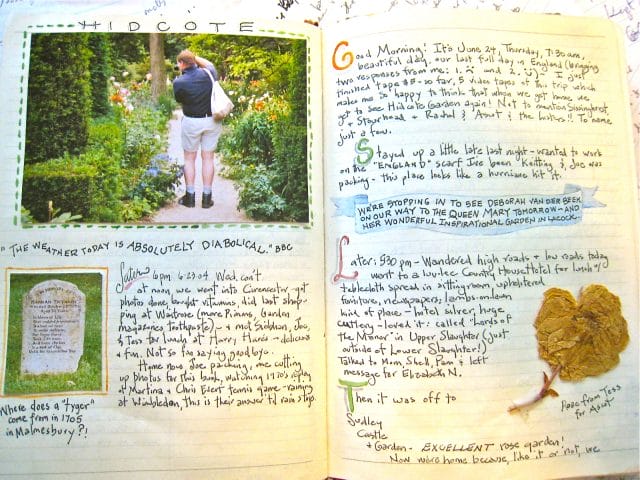 HIDCOTE
"THE WEATHER TODAY IS ABSOLUTELY DIABOLICAL." BBC
IN MEMORY OF
HANNAH TWYNNOY
Where does a "tyger"
come from in 1705
in Malmesbury?!
Later 6pm 6-23-04 Wed. con't.
at noon we went into Cirencester, got
photos done, bought vitamins, did last shop-
ping at Waitrose (more Pimms, Garden
magazines, toothpaste) - & met Siobhan, Joe,
& Tess for lunch at Harry Hares - delicious
& fun. Not so fun saying goodbye.
Home now Joe packing, me cutting
up photos for this book, watching 1970's replay
of Martina & Chris Evert tennis game - raining
at Wimbledon, this is their answer to rain strip.
Good Morning! It's June 24, Thursday, 7:30 am,
beautiful day, our last full day in England (bringing
two responses from me: 1. and 2. ) I just
finished tape #5 - so far, 5 video tapes of this trip which
makes me happy to think that when we get home we
get to see Hidcote Garden again! Not to mention Sissinghurst
& Stourhead & Rachel & "Ascot & the Lusters"!! To name
just a few.
Stayed up a little late last night - wanted to work
on the "ENGLAND" scarf I've been knitting & Joe was
packing - this place looks like a hurricane hit it.
WE'RE STOPPING IN TO SEE DEBORAH VAN DER BEEK
ON OUR WAY TO THE QUEEN MARY TOMORROW - AND
HER WONDERFUL INSPIRATIONAL GARDEN IN LACOCK.
Later: 5:30 pm - Wandered high roads & low roads today
went to a luv-lee Country House Hotel for lunch w/
tablecloth spread in sitting room, upholstered
furniture, newspapers, lamps-on-down
kind of place - hotel silver, huge
cutlery - loved it: called "Lords of
the Manor" in Upper Slaughter (just
outside of Lower Slaughter!)
Talked to Mom, Shelly, Pam & left
message for Elizabeth N.
Then it was off to
Sudley
Castle
& Garden - EXCELLENT rose garden!
Now we're home because, like it or not, we
Rose from Tess
for Ascot